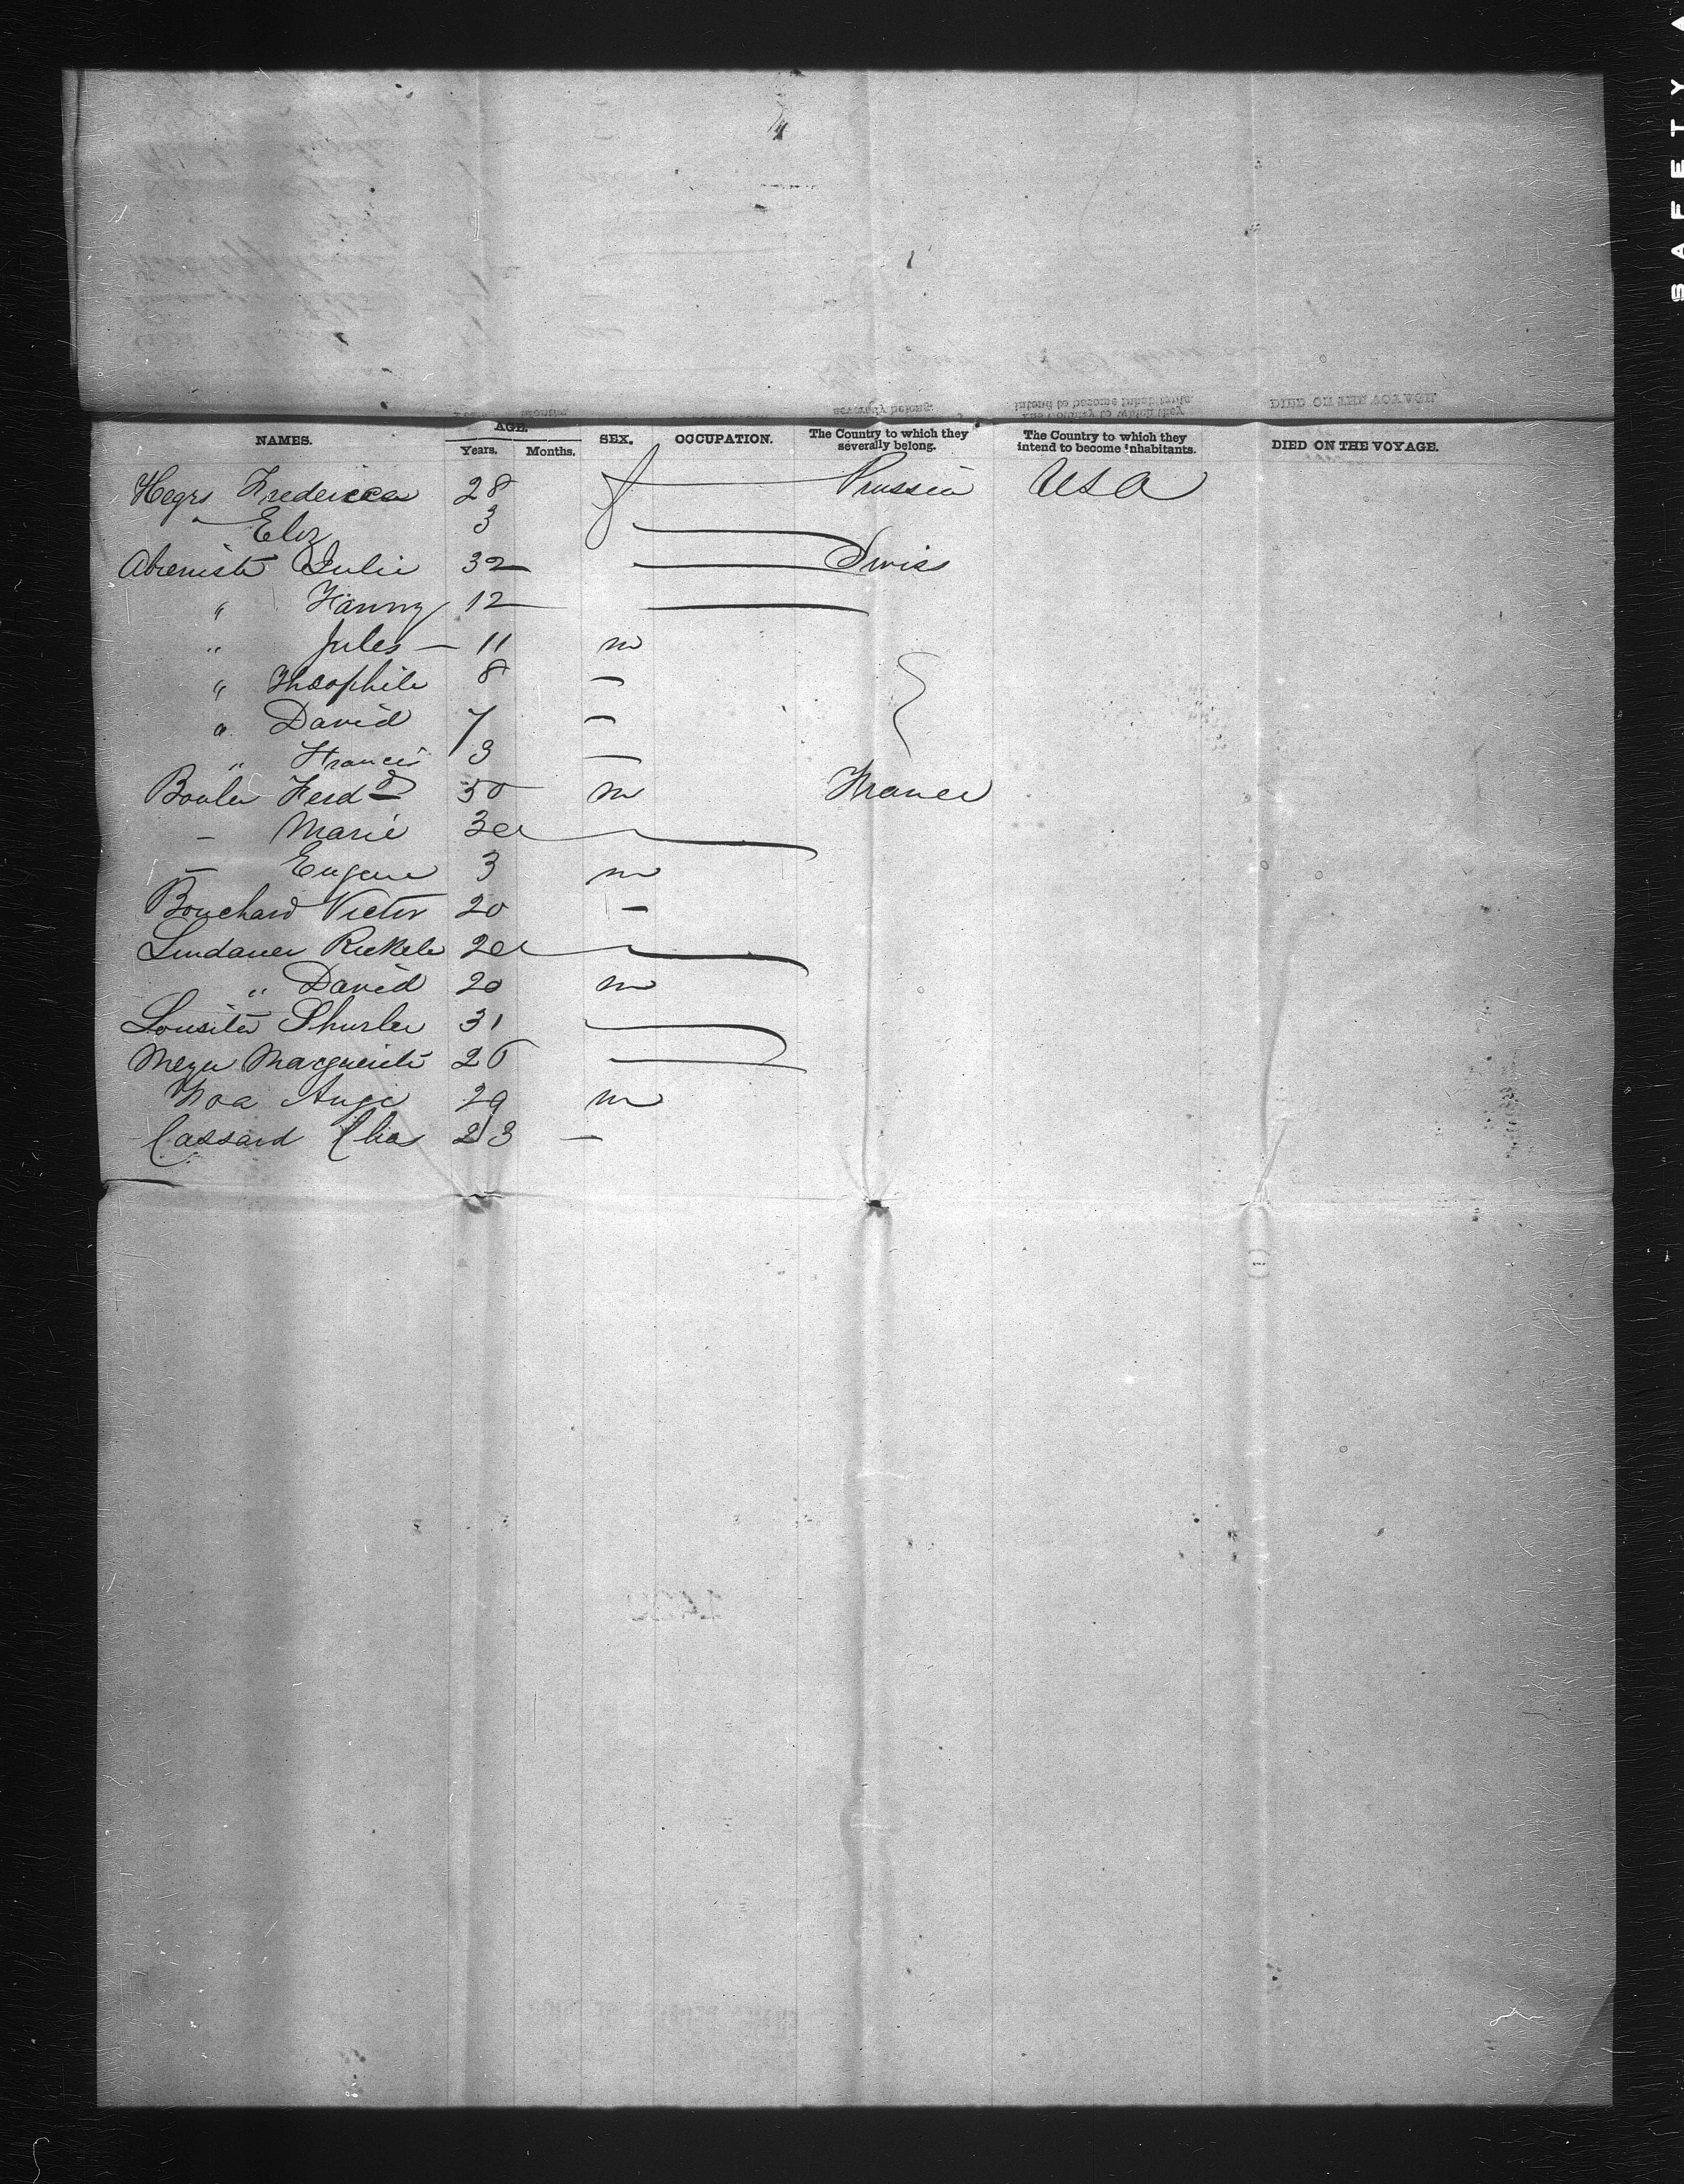 NAMES. AGE. Years. Months. SEX. OCCUPATION. The Country to which they severally belong. The Country to which they intend to become inhabitants. DIED ON THE VOYAGE.
Hegrs Fredericca 28 f Prussia USA
" Eliz 3
Julie 32 Swiss
" Fanny 12
" Jules — 11 m
" Theophile 8 —
" David 7 —
" Francis 3 —
Ferdd 30 m France
- Marie 32
- Eugene 3 m
Bouchard Victor 20 —
Lindauer 22
" David 20 m
31
Meyer Marguerite 26
Noa Ange 29 m
Cassard Chas 23 —
SAFETY